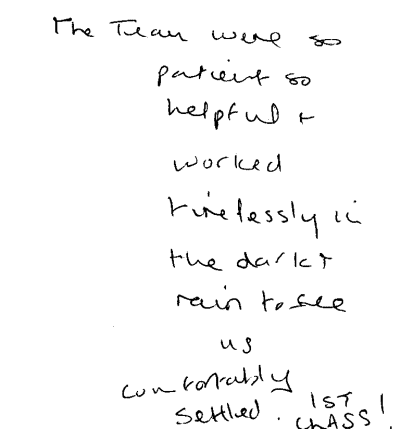 The Team were so
patient so
helpful +
worked
tirelessly in
the dark +
rain to see
us
comfortably
settled. 1ST
CLASS!